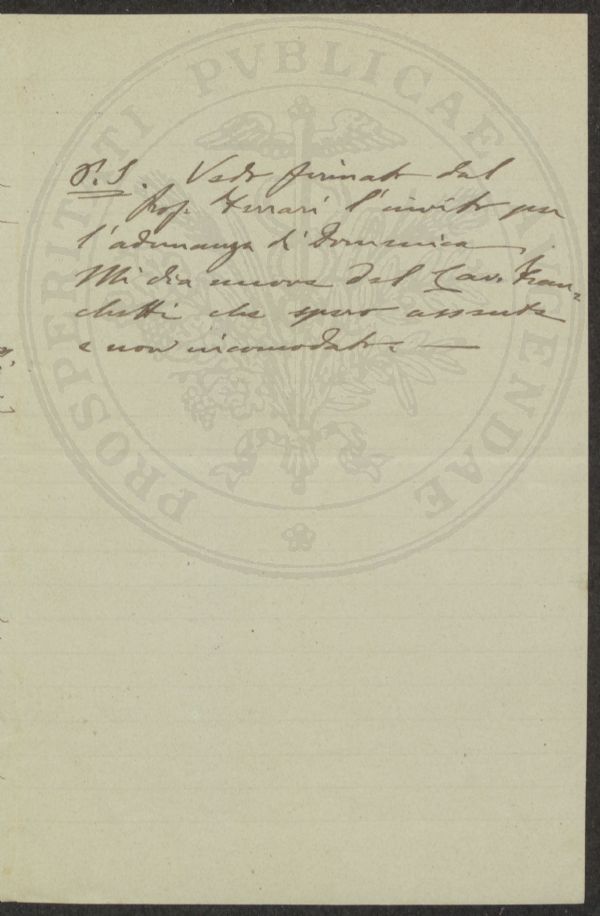 P.S. Vedo firmato dal
Prof. Ferrari l'invito per
l'adunanza di Domenica.
Mi dia nuove del Cav. Fran=
chetti che spero assente
e non incomodato. —
PROSPERITATI PVBLICAE AVGENDAE